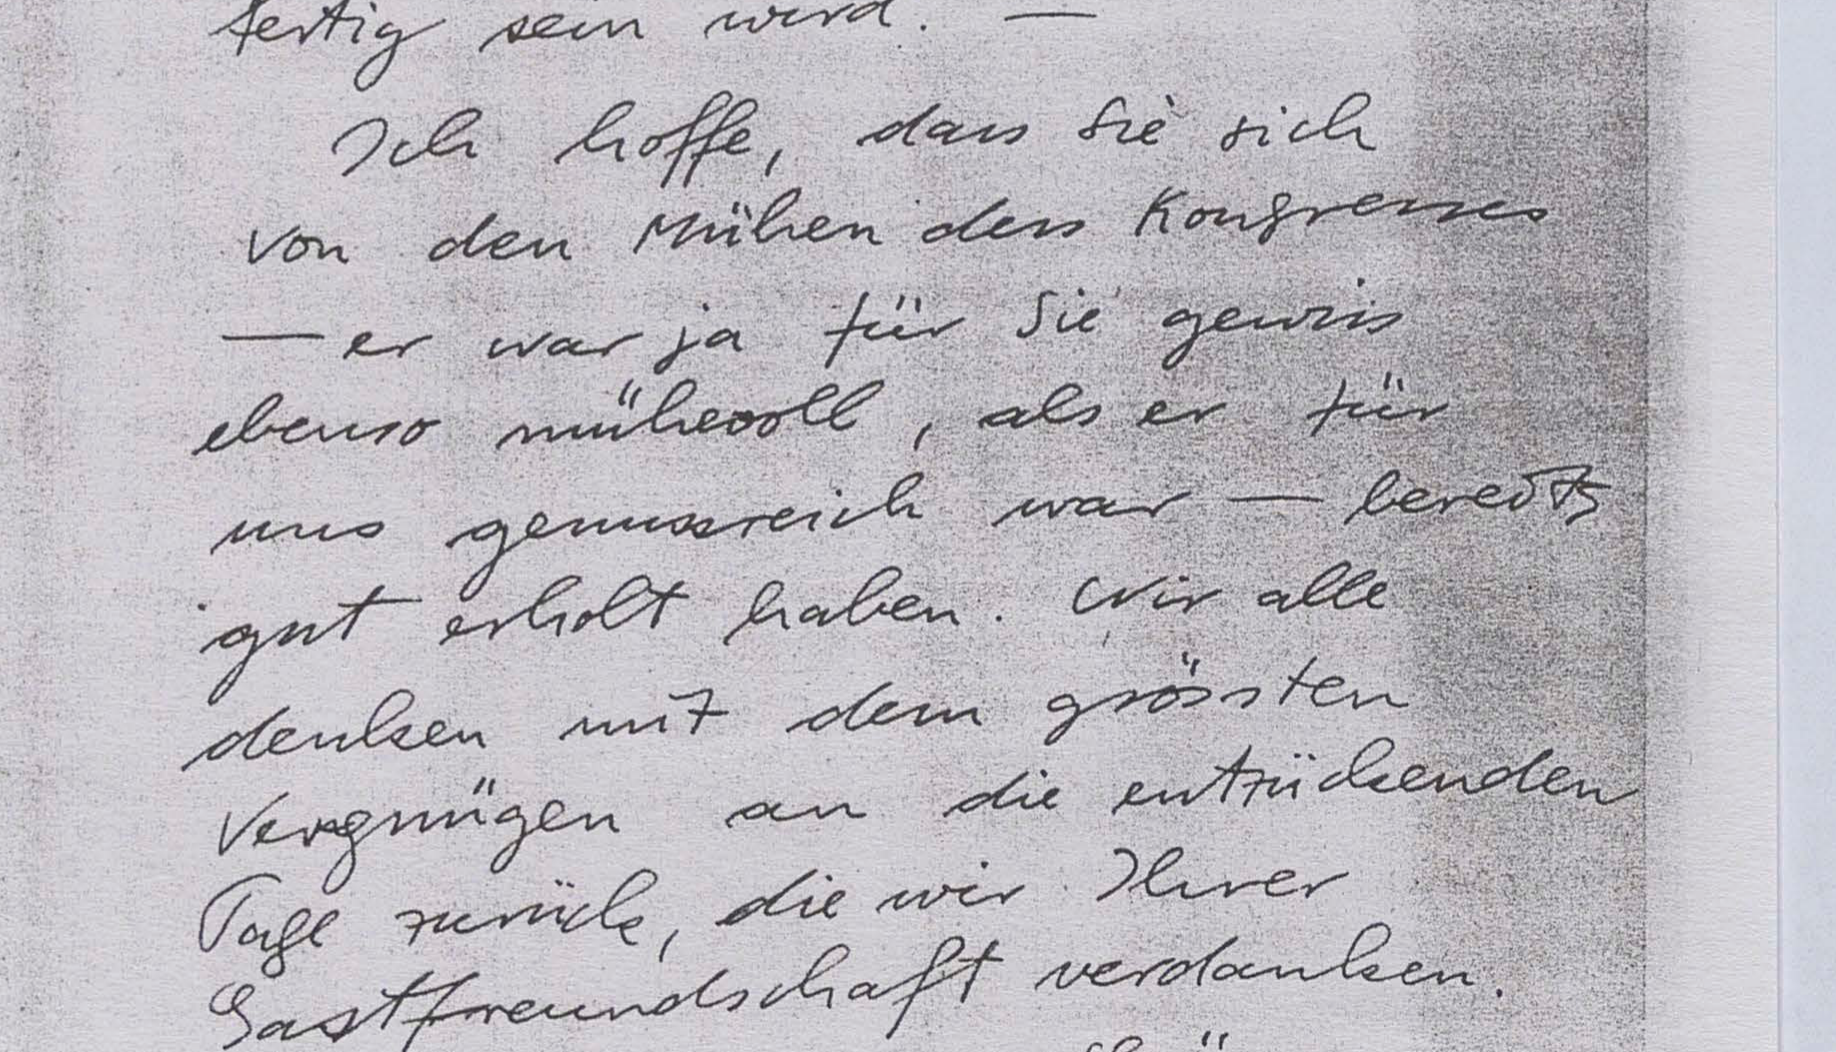 fertig sein wird. —
Ich hoffe, dass Sie sich
von den Mühen des Kongresses
— er war ja für Sie gewiss
ebenso mühevoll, als er für
uns genussreich war — bereits
gut erholt haben. Wir alle
denken mit dem grössten
Vergnügen an die entzückenden
Tage zurück, die wir Ihrer
Gastfreundschaft verdanken.